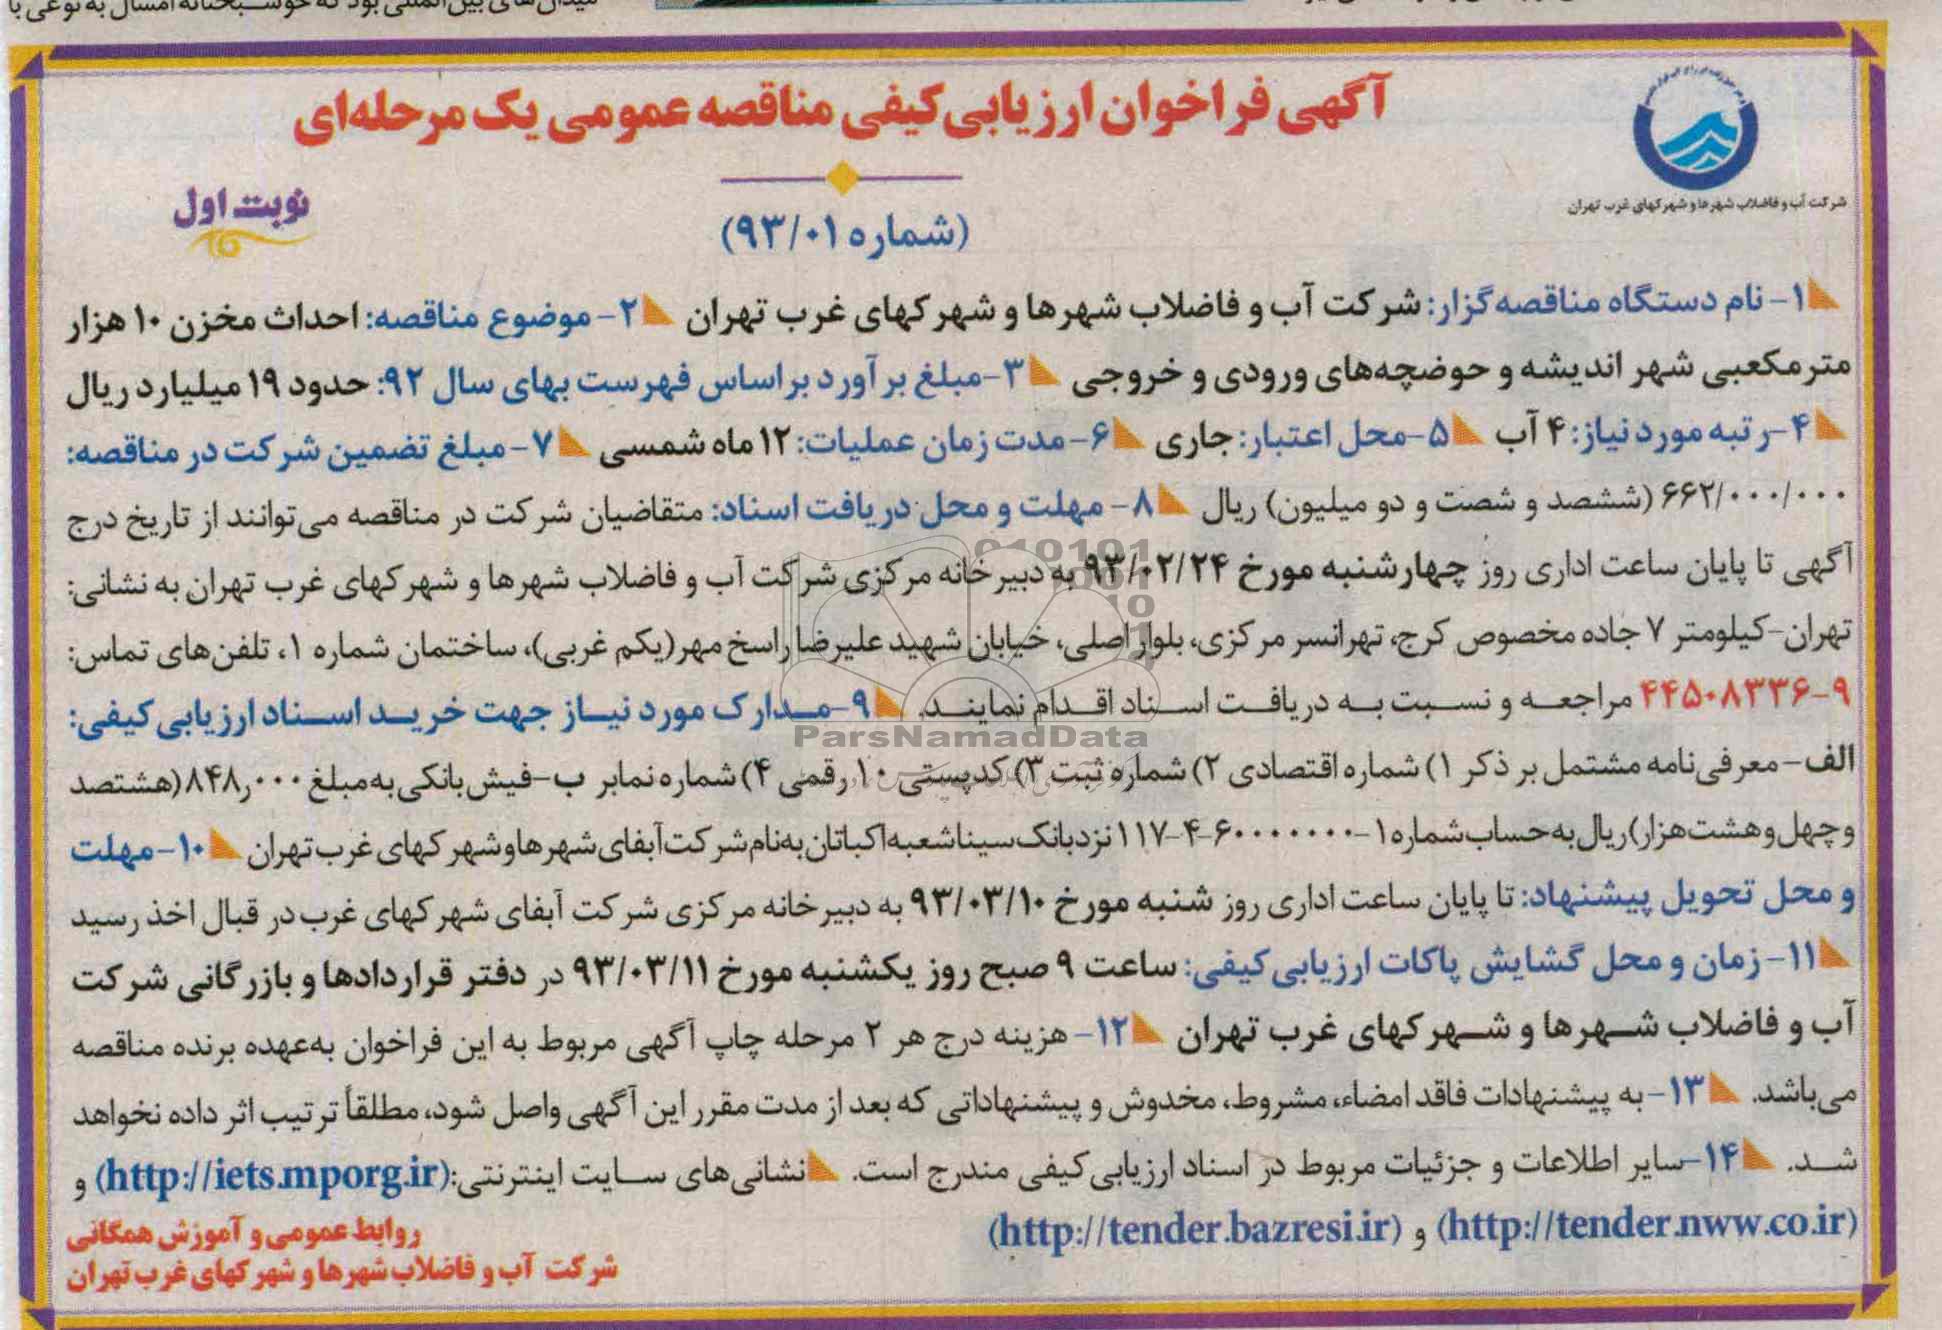 آگهی فراخوان ارزیابی کیفی مناقصه عمومی یک مرحله‌ای
شرکت آب و فاضلاب شهرها و شهرکهای غرب تهران
نوبت اول
(شماره ۹۳/۰۱)
۱- نام دستگاه مناقصه‌گزار: شرکت آب و فاضلاب شهرها و شهرکهای غرب تهران ۲- موضوع مناقصه: احداث مخزن ۱۰ هزار
مترمکعبی شهر اندیشه و حوضچه‌های ورودی و خروجی ۳-مبلغ برآورد براساس فهرست بهای سال ۹۲: حدود ۱۹ میلیارد ریال
۴-رتبه مورد نیاز: ۴ آب ۵-محل اعتبار: جاری ۶-مدت زمان عملیات: ۱۲ ماه شمسی ۷- مبلغ تضمین شرکت در مناقصه:
۶۶۲/۰۰۰/۰۰۰ (ششصد و شصت و دو میلیون) ریال ۸- مهلت و محل دریافت اسناد: متقاضیان شرکت در مناقصه می‌توانند از تاریخ درج
آگهی تا پایان ساعت اداری روز چهارشنبه مورخ ۹۳/۰۲/۲۴ به دبیرخانه مرکزی شرکت آب و فاضلاب شهرها و شهرکهای غرب تهران به نشانی:
تهران-کیلومتر ۷ جاده مخصوص کرج، تهرانسر مرکزی، بلوار اصلی، خیابان شهید علیرضا راسخ مهر(یکم غربی)، ساختمان شماره ۱، تلفن‌های تماس:
۴۴۵۰۸۳۳۶-۹ مراجعه و نسبت به دریافت اسناد اقدام نمایند. ۹-مدارک مورد نیاز جهت خرید اسناد ارزیابی کیفی:
ParsNamadData
الف- معرفی‌نامه مشتمل بر ذکر ۱) شماره اقتصادی ۲) شماره ثبت ۳) کدپستی ۱۰ رقمی ۴) شماره نمابر ب-فیش بانکی به مبلغ ۸۴۸٫۰۰۰ (هشتصد
و چهل و هشت هزار) ریال به حساب شماره ۱-۶۰۰۰۰۰۰۰-۴-۱۱۷ نزد بانک سینا شعبه اکباتان به نام شرکت آبفای شهرها و شهرکهای غرب تهران ۱۰- مهلت
و محل تحویل پیشنهاد: تا پایان ساعت اداری روز شنبه مورخ ۹۳/۰۳/۱۰ به دبیرخانه مرکزی شرکت آبفای شهرکهای غرب در قبال اخذ رسید
۱۱- زمان و محل گشایش پاکات ارزیابی کیفی: ساعت ۹ صبح روز یکشنبه مورخ ۹۳/۰۳/۱۱ در دفتر قراردادها و بازرگانی شرکت
آب و فاضلاب شهرها و شهرکهای غرب تهران ۱۲- هزینه درج هر ۲ مرحله چاپ آگهی مربوط به این فراخوان به‌عهده برنده مناقصه
می‌باشد. ۱۳- به پیشنهادات فاقد امضاء، مشروط، مخدوش و پیشنهاداتی که بعد از مدت مقرر این آگهی واصل شود، مطلقاً ترتیب اثر داده نخواهد
شد. ۱۴-سایر اطلاعات و جزئیات مربوط در اسناد ارزیابی کیفی مندرج است. نشانی‌های سایت اینترنتی:(http://iets.mporg.ir) و
(http://tender.nww.co.ir) و (http://tender.bazresi.ir)
روابط عمومی و آموزش همگانی
شرکت آب و فاضلاب شهرها و شهرکهای غرب تهران